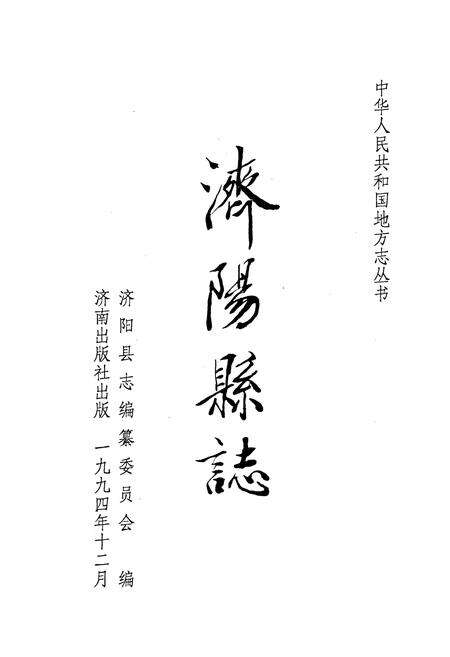 中华人民共和国地方志丛书
濟陽縣誌
济阳县志编纂委员会 编
济南出版社出版 一九九四年十二月